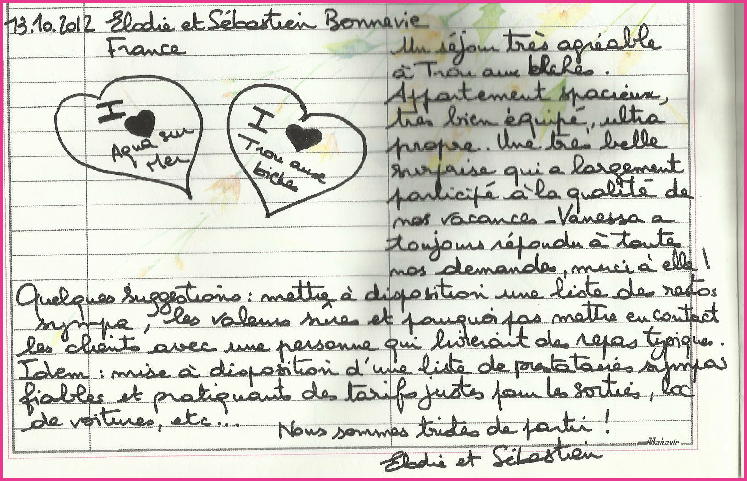 13.10.2012 Elodie et Sébastien Bonnevie
France
I ♥
Aqua sur
Mer
I ♥
Trou aux
biches
Un séjour très agréable
à Trou aux biches.
Appartement spacieux,
très bien équipé, ultra
propre. Une très belle
surprise qui a largement
participé à la qualité de
nos vacances - Vanessa a
toujours répondu à toute
nos demandes, merci à elle !
Quelques suggestions : mettre à disposition une liste des restos
sympa, les valeurs sûres et pourquoi pas mettre en contact
les clients avec une personne qui livrerait des repas typiques.
Idem : mise à disposition d'une liste de prestataires sympa
fiables et pratiquant des tarifs justes pour les sorties, loc
de voitures, etc...
Nous sommes tristes de partir !
Elodie et Sébastien